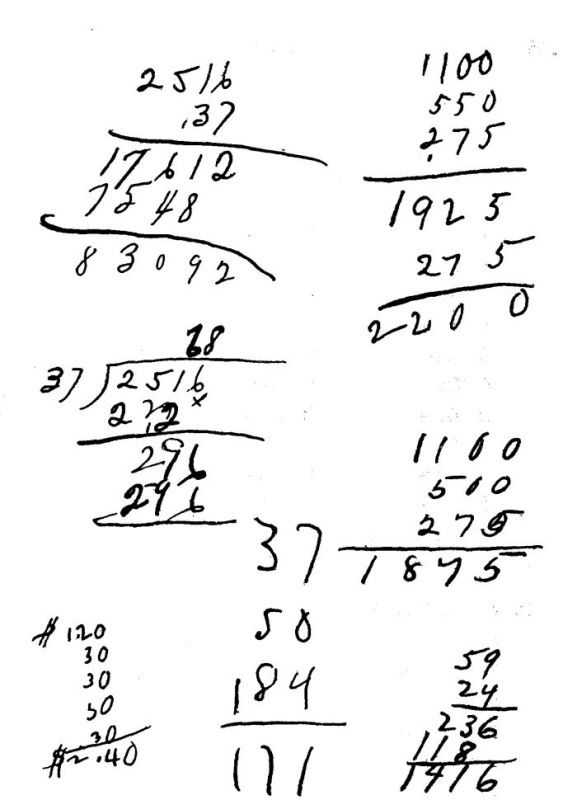 2516
.37
17612
7548
83092
1100
550
275
1925
275
2200
68
37 ) 2516
222 x
296
296
1100
500
275
1875
37
50
184
171
$ 120
30
30
30
30
$2.40
59
24
236
118
1416